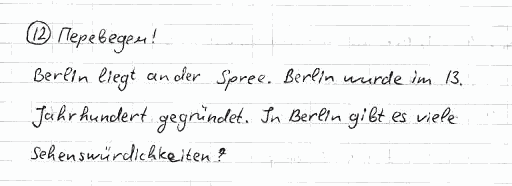 ⑫ Переведем!
Berlin liegt an der Spree. Berlin wurde im 13.
Jahrhundert gegründet. In Berlin gibt es viele
Sehenswürdichkeiten?